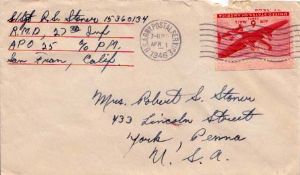 S/Sgt R.S. Stoner 15360134
R.M.D. 27th Inf
APO 25 c/o P.M.
San Fran, Calif
U.S. ARMY POSTAL SERVICE
APR
1946
Mrs. Robert S. Stoner
433 Lincoln Street
York, Penna
U.S.A.